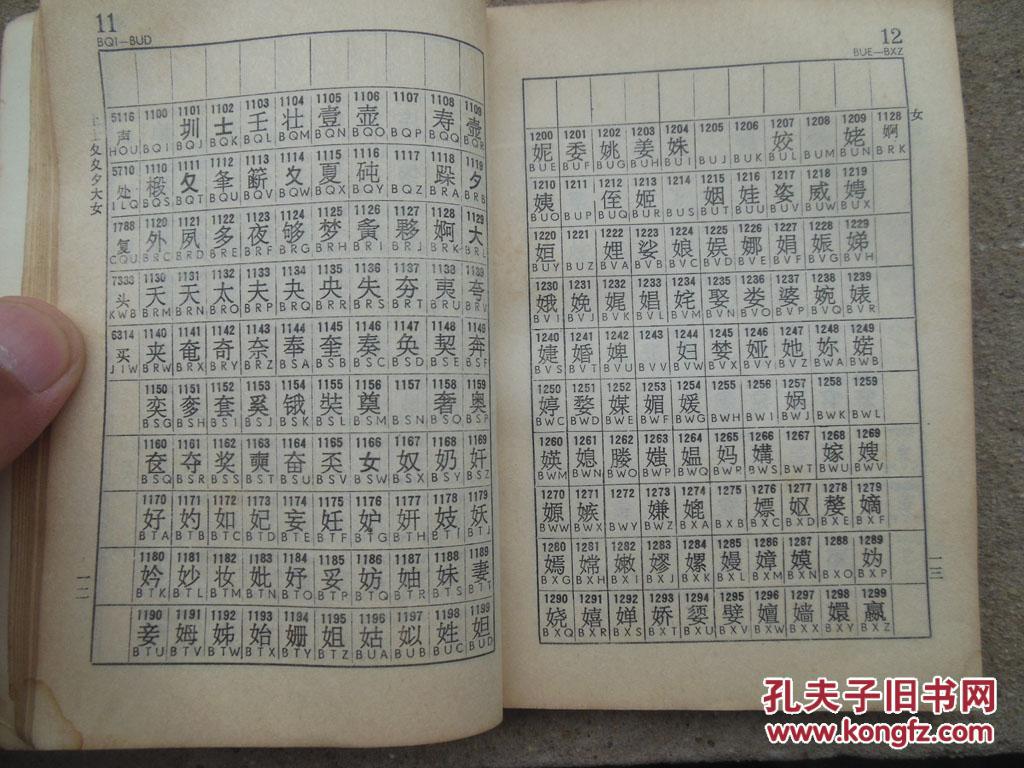 11
BQI—BUD
5116 1100 1101 1102 1103 1104 1105 1106 1107 1108 1109
声 圳 士 壬 壮 壹 壶 寿 壺
HOU BQI BQJ BQK BQL BQM BQN BQO BQP BQQ BQR
5710 1110 1111 1112 1113 1114 1115 1116 1117 1118 1119
处 夂 夆 夊 夏 夕
ILQ BQS BQT BQU BQV BQW BQX BQY BQZ BRA BRB
1788 1120 1121 1122 1123 1124 1125 1126 1127 1128 1129
复 外 夙 多 夜 够 梦 夤 夥 婀 大
CQU BRC BRD BRE BRF BRG BRH BRI BRJ BRK BRL
7333 1130 1131 1132 1133 1134 1135 1136 1137 1138 1139
头 夭 天 太 夫 夬 央 失 夯 夷 夸
KWB BRM BRN BRO BRP BRQ BRR BRS BRT BRU BRV
6314 1140 1141 1142 1143 1144 1145 1146 1147 1148 1149
买 夹 奄 奇 奈 奉 奎 奏 奂 契 奔
JIW BRW BRX BRY BRZ BSA BSB BSC BSD BSE BSF
1150 1151 1152 1153 1154 1155 1156 1157 1158 1159
奕 套 奚 奘 奠 奢 奥
BSG BSH BSI BSJ BSK BSL BSM BSN BSO BSP
1160 1161 1162 1163 1164 1165 1166 1167 1168 1169
夺 奖 奭 奋 女 奴 奶 奸
BSQ BSR BSS BST BSU BSV BSW BSX BSY BSZ
1170 1171 1172 1173 1174 1175 1176 1177 1178 1179
好 妁 如 妃 妄 妊 妒 妍 妓 妖
BTA BTB BTC BTD BTE BTF BTG BTH BTI BTJ
1180 1181 1182 1183 1184 1185 1186 1187 1188 1189
妗 妙 妆 妣 妤 妥 妨 妯 妹 妻
BTK BTL BTM BTN BTO BTP BTQ BTR BTS BTT
1190 1191 1192 1193 1194 1195 1196 1197 1198 1199
妾 姆 姊 始 姗 姐 姑 姒 姓 妲
BTU BTV BTW BTX BTY BTZ BUA BUB BUC BUD
一二
12
BUE—BXZ
女
1200 1201 1202 1203 1204 1205 1206 1207 1208 1209 1128
妮 委 姚 姜 姝 姣 姥 婀
BUE BUF BUG BUH BUI BUJ BUK BUL BUM BUN BRK
1210 1211 1212 1213 1214 1215 1216 1217 1218 1219
姨 侄 姬 姻 娃 姿 威 娉
BUO BUP BUQ BUR BUS BUT BUU BUV BUW BUX
1220 1221 1222 1223 1224 1225 1226 1227 1228 1229
姮 娌 娑 娘 娱 娜 娟 娠 娣
BUY BUZ BVA BVB BVC BVD BVE BVF BVG BVH
1230 1231 1232 1233 1234 1235 1236 1237 1238 1239
娥 娩 娓 娼 娶 娄 婆 婉 婊
BVI BVJ BVK BVL BVM BVN BVO BVP BVQ BVR
1240 1241 1242 1243 1244 1245 1246 1247 1248 1249
婕 婚 婢 妇 婪 娅 她 妳 婼
BVS BVT BVU BVV BVW BVX BVY BVZ BWA BWB
1250 1251 1252 1253 1254 1255 1256 1257 1258 1259
婷 婺 媒 媚 媛 娲
BWC BWD BWE BWF BWG BWH BWI BWJ BWK BWL
1260 1261 1262 1263 1264 1265 1266 1267 1268 1269
媖 媳 媵 媸 媪 妈 媾 嫁 嫂
BWM BWN BWO BWP BWQ BWR BWS BWT BWU BWV
1270 1271 1272 1273 1274 1275 1276 1277 1278 1279
嫄 嫉 嫌 嫖 妪 嫠 嫡
BWW BWX BWY BWZ BXA BXB BXC BXD BXE BXF
1280 1281 1282 1283 1284 1285 1286 1287 1288 1289
嫣 嫦 嫩 嫪 嫘 嫚 嫜 嫫 妫
BXG BXH BXI BXJ BXK BXL BXM BXN BXO BXP
1290 1291 1292 1293 1294 1295 1296 1297 1298 1299
娆 嬉 婵 娇 嬖 嬗 嫱 嬛 嬴
BXQ BXR BXS BXT BXU BXV BXW BXX BXY BXZ
一三
孔夫子旧书网
www.kongfz.com